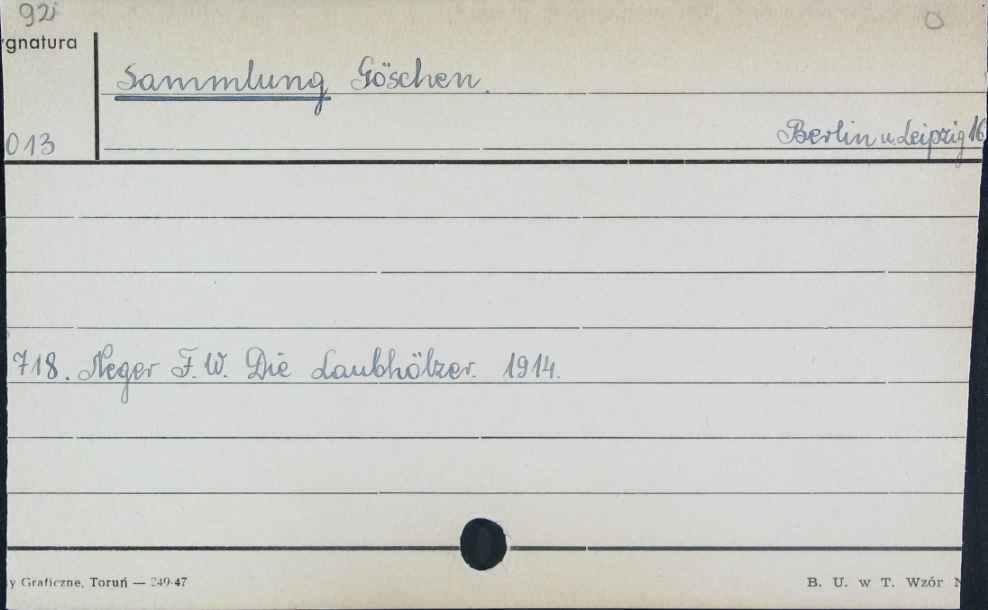 92i
ygnatura
Sammlung Göschen.
013
Berlin u. Leipzig 16
718. Neger F. W. Die Laubhölzer. 1914.
y Graficzne, Toruń — 249-47
B. U. w T. Wzór N